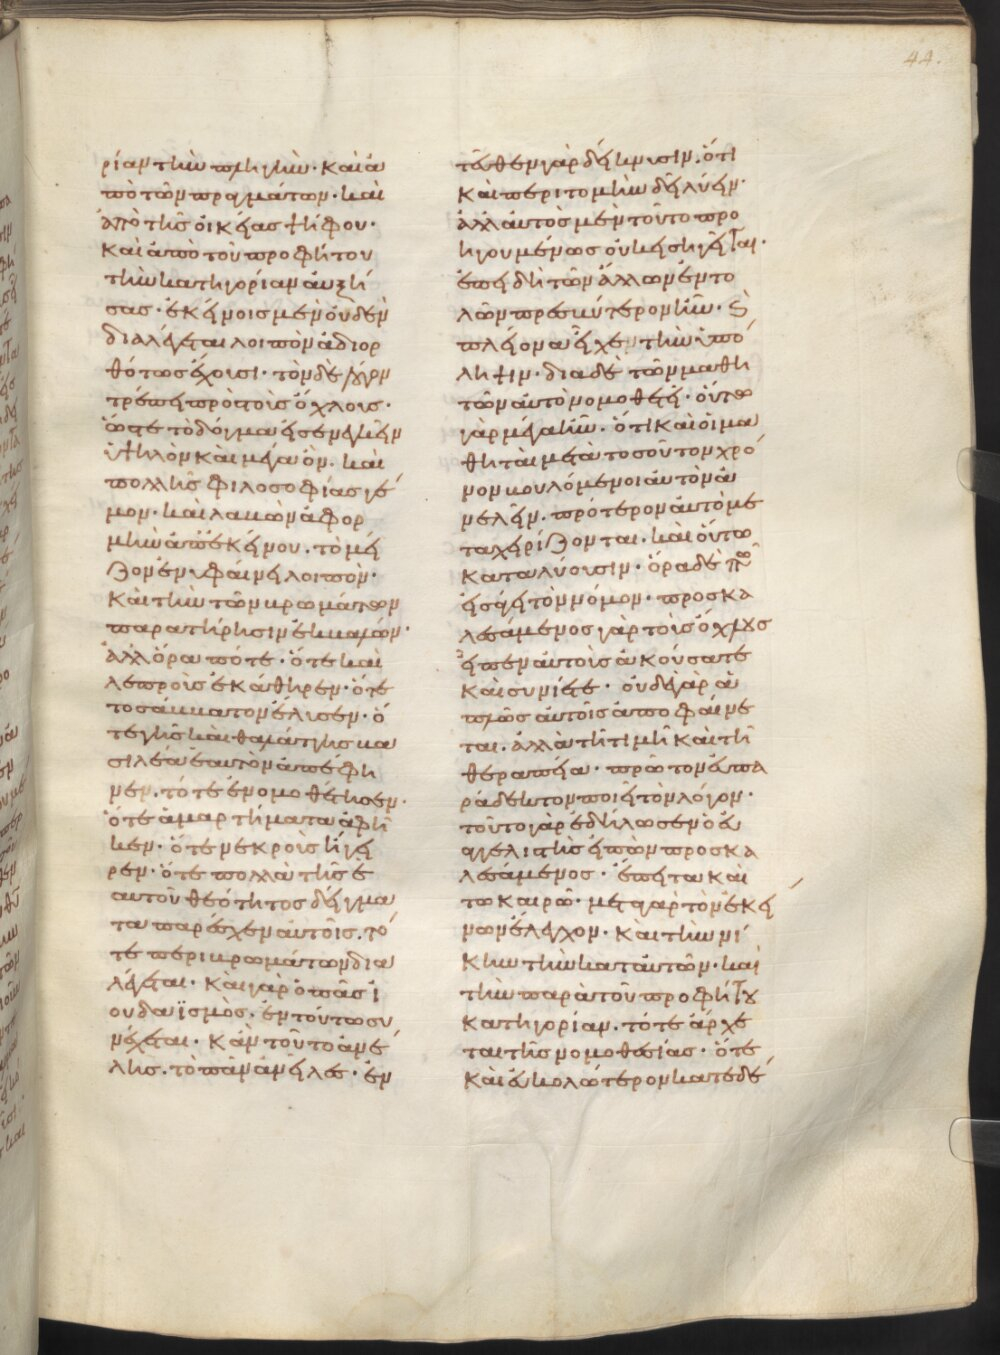 44.
ρίαν τὴν πληγὴν· καὶ ἀ
πὸ τῶν πραγμάτων· καὶ
ἀπὸ τῆς οἰκείας ψήφου·
καὶ ἀπὸ τοῦ προφήτου
τὴν κατηγορίαν αὐξή
σας· ἐκείνοις μὲν οὐδὲν
διαλέγεται λοιπὸν ἀδιορ
θότως ἔχουσι· τὸν δὲ λόγον
τρέπει πρὸς τοῖς ὄχλοις·
ὥστε τὸ δόγμα εἰσενεγκεῖν
ὑψηλὸν καὶ μέγα ὂν· καὶ
πολλῆς φιλοσοφίας γέ
μον· καὶ λαβὼν ἀφορ
μὴν ἀπ' ἐκείνου. τὸ μεῖ
ζον ἐνυφαίνει λοιπὸν·
καὶ τὴν τῶν βρωμάτων
παρατήρησιν ἐκβαλών·
ἀλλ' ὅρα πότε· ὅτε καὶ
λεπροὺς ἐκάθηρεν· ὅτε
τὸ σάββατον ἔλυσεν· ὅ
τε γῆς καὶ θαλάττης βα
σιλέα ἑαυτὸν ἀπέφη
νεν. τότε ἐνομοθέτησεν·
ὅτε ἁμαρτήματα ἀφῆ
κεν· ὅτε νεκροὺς ἤγει
ρεν· ὅτε πολλὰ τῆς ἑ
αυτοῦ θεότητος δείγμα
τα παρέσχεν αὐτοῖς. τό
τε περὶ βρωμάτων δια
λέγεται· καὶ γὰρ ὁ πᾶς ἰ
ουδαϊσμὸς· ἐν τούτω συ
νέχεται· κἂν τοῦτο ἀνέ
λης. τὸ πᾶν ἀνεῖλες· ἐν
τεῦθεν γὰρ δείκνυσιν· ὅτι
καὶ περιτομὴν δεῖ λύειν·
ἀλλ' αὐτὸς μὲν τοῦτο προ
ηγουμένως οὐκ εἰσηγεῖται·
ἐπειδὴ τῶν ἄλλων ἐντο
λῶν πρεσβύτερον ἦν· καὶ
πλείονα εἶχε τὴν ὑπό
ληψιν· διὰ δὲ τῶν μαθη
τῶν αὐτὸ νομοθετεῖ· οὕτω
γὰρ μέγα ἦν. ὅτι καὶ οἱ μα
θηταὶ μετὰ τοσοῦτον χρό
νον βουλόμενοι αὐτὸ ἀν
νελεῖν. πρότερον αὐτὸ με
ταχειρίζονται. καὶ οὕτω
καταλύουσιν· ὅρα δὲ πῶς
εἰσάγει τὸν νόμον· προσκα
λεσάμενος γὰρ τοὺς ὄχλους
εἶπεν αὐτοῖς ἀκούσατε
καὶ συνίετε· οὐδὲ γὰρ ἁ
πλῶς αὐτοῖς ἀποφαίνε
ται. ἀλλὰ τῆ τιμῆ καὶ τῆ
θεραπεία· πρῶτον εὐπα
ράδεκτον ποιεῖ τὸν λόγον·
τοῦτο γὰρ ἐδήλωσεν ὁ εὐ
αγγελιστὴς εἰπὼν προσκα
λεσάμενος· ἔπειτα καὶ
τῶ καιρῶ· μετὰ γὰρ τὸν ἐκεί
νων ἔλεγχον· καὶ τὴν νί
κην τὴν κατ' αὐτῶν· καὶ
τὴν παρὰ τοῦ προφήτου
κατηγορίαν. τότε ἄρχε
ται τῆς νομοθεσίας· ὅτε
καὶ εὐκολώτερον κατεδέ